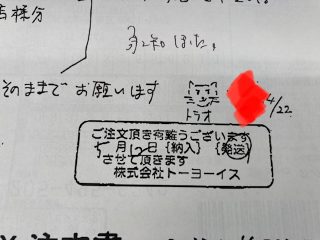 店様分
そのままで お願います
トラオ
4/22
ご注文頂き有難うございます
5月12日{納入}{発送}
させて頂きます
株式会社トーヨーイス
注文書